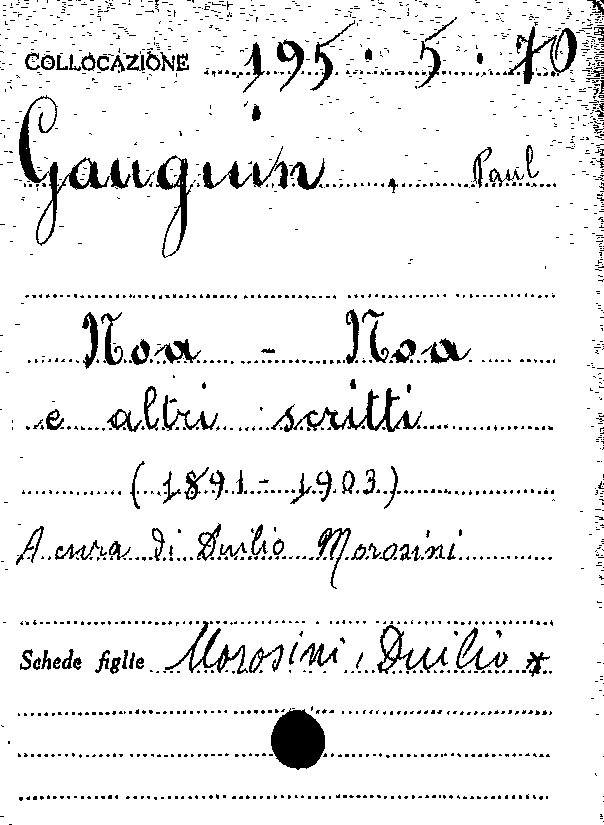 COLLOCAZIONE 195.5.70
Gauguin, Paul
Noa - Noa
e altri scritti
(1891-1903)
A cura di Duilio Morosini
Schede figlie Morosini, Duilio *